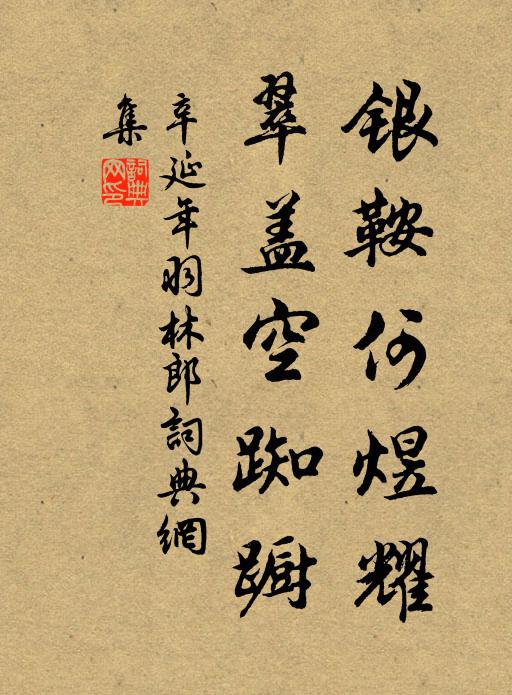 银鞍何煜耀
翠盖空踟蹰
辛延年羽林郎詞典網
集
詞典
网印